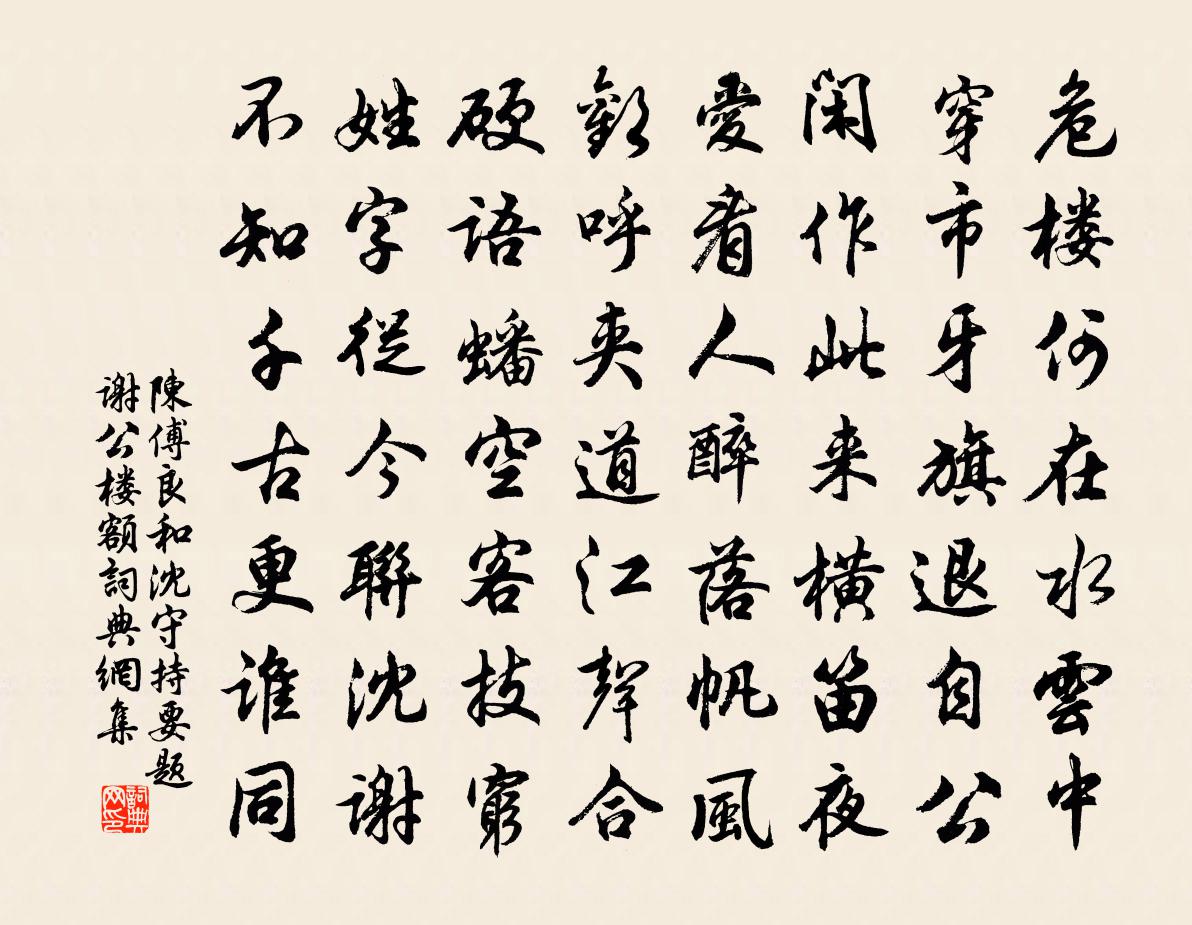 危楼何在水雲中
穿市牙旗退自公
閑作此来橫笛夜
愛看人醉落帆風
歡呼夾道江聲合
硬語蟠空客技窮
姓字從今聯沈謝
不知千古更誰同
陳傅良和沈守持要題
谢公楼額詞典網集
詞典网印